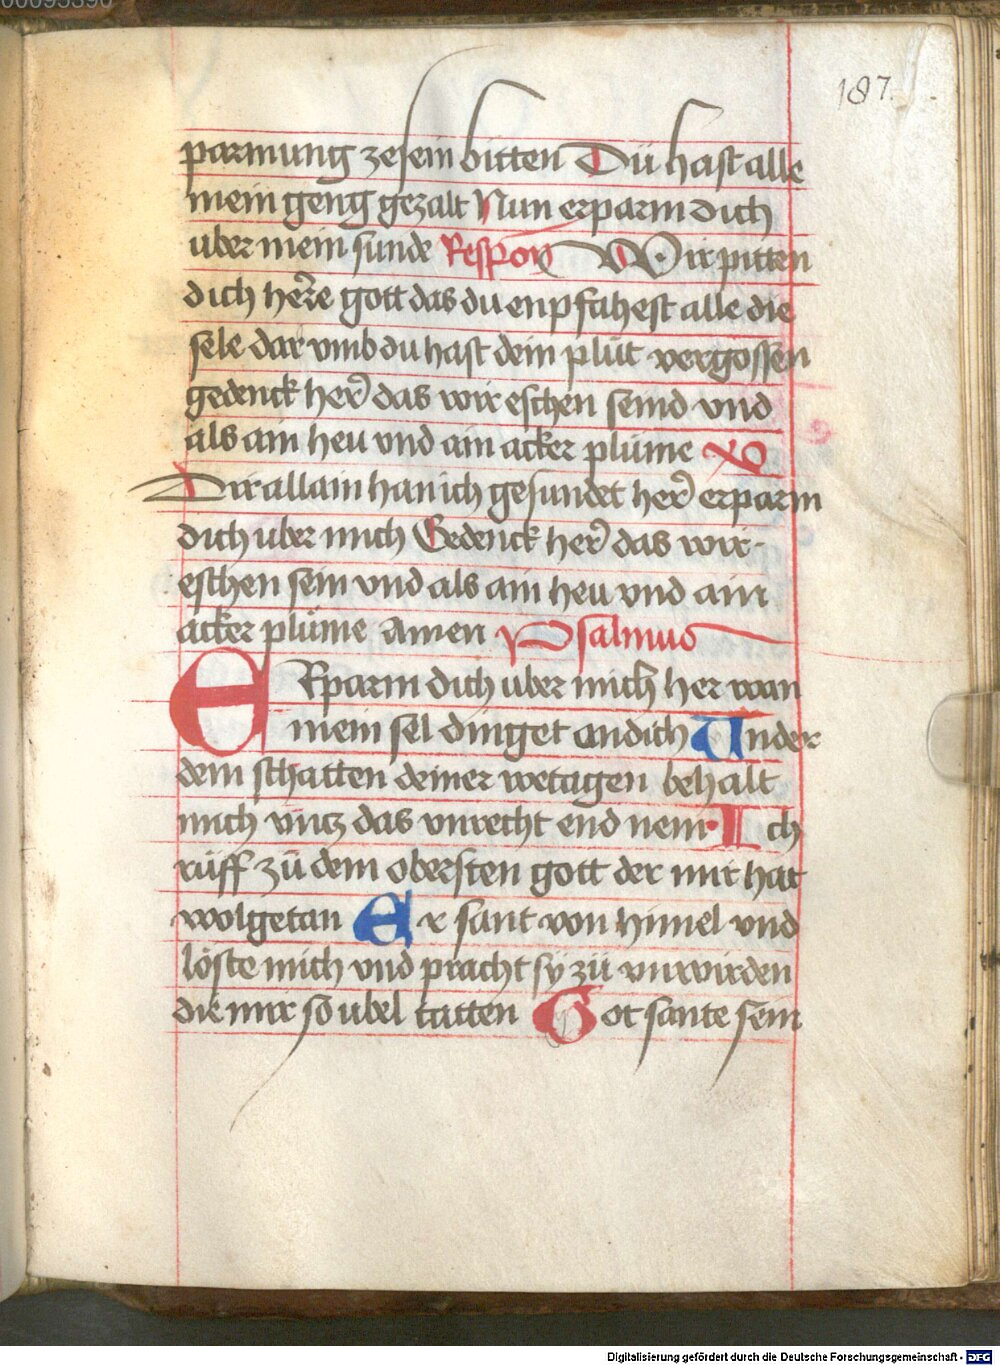 187.
parmung ze sein bitten Dü hast alle
mein geng gezalt Nun erparm dich
uber mein sunde Respon Wir pitten
dich herre gott das du enpfahest alle die
sele dar vmb du hast dein plüt vergossen
gedenck her das wir eschen seind vnd
als ain heu vnd ain acker plüme
Dir allain han ich gesundet her erparm
dich uber mich Gedenck her das wir
eschen sein vnd als ain heu vnd ain
acker plüme Amen Psalmus
ERparm dich uber mich her wan
mein sel dinget an dich Under
dem schatten deiner wetagen behalt
mich vntz das vnrecht end nem Ich
rüff zü dem obersten gott der mir hat
wolgetan Er sant von himel vnd
löste mich vnd pracht sy zü vnwirden
die mir so ubel tatten Got sante sein
Digitalisierung gefördert durch die Deutsche Forschungsgemeinschaft - DFG